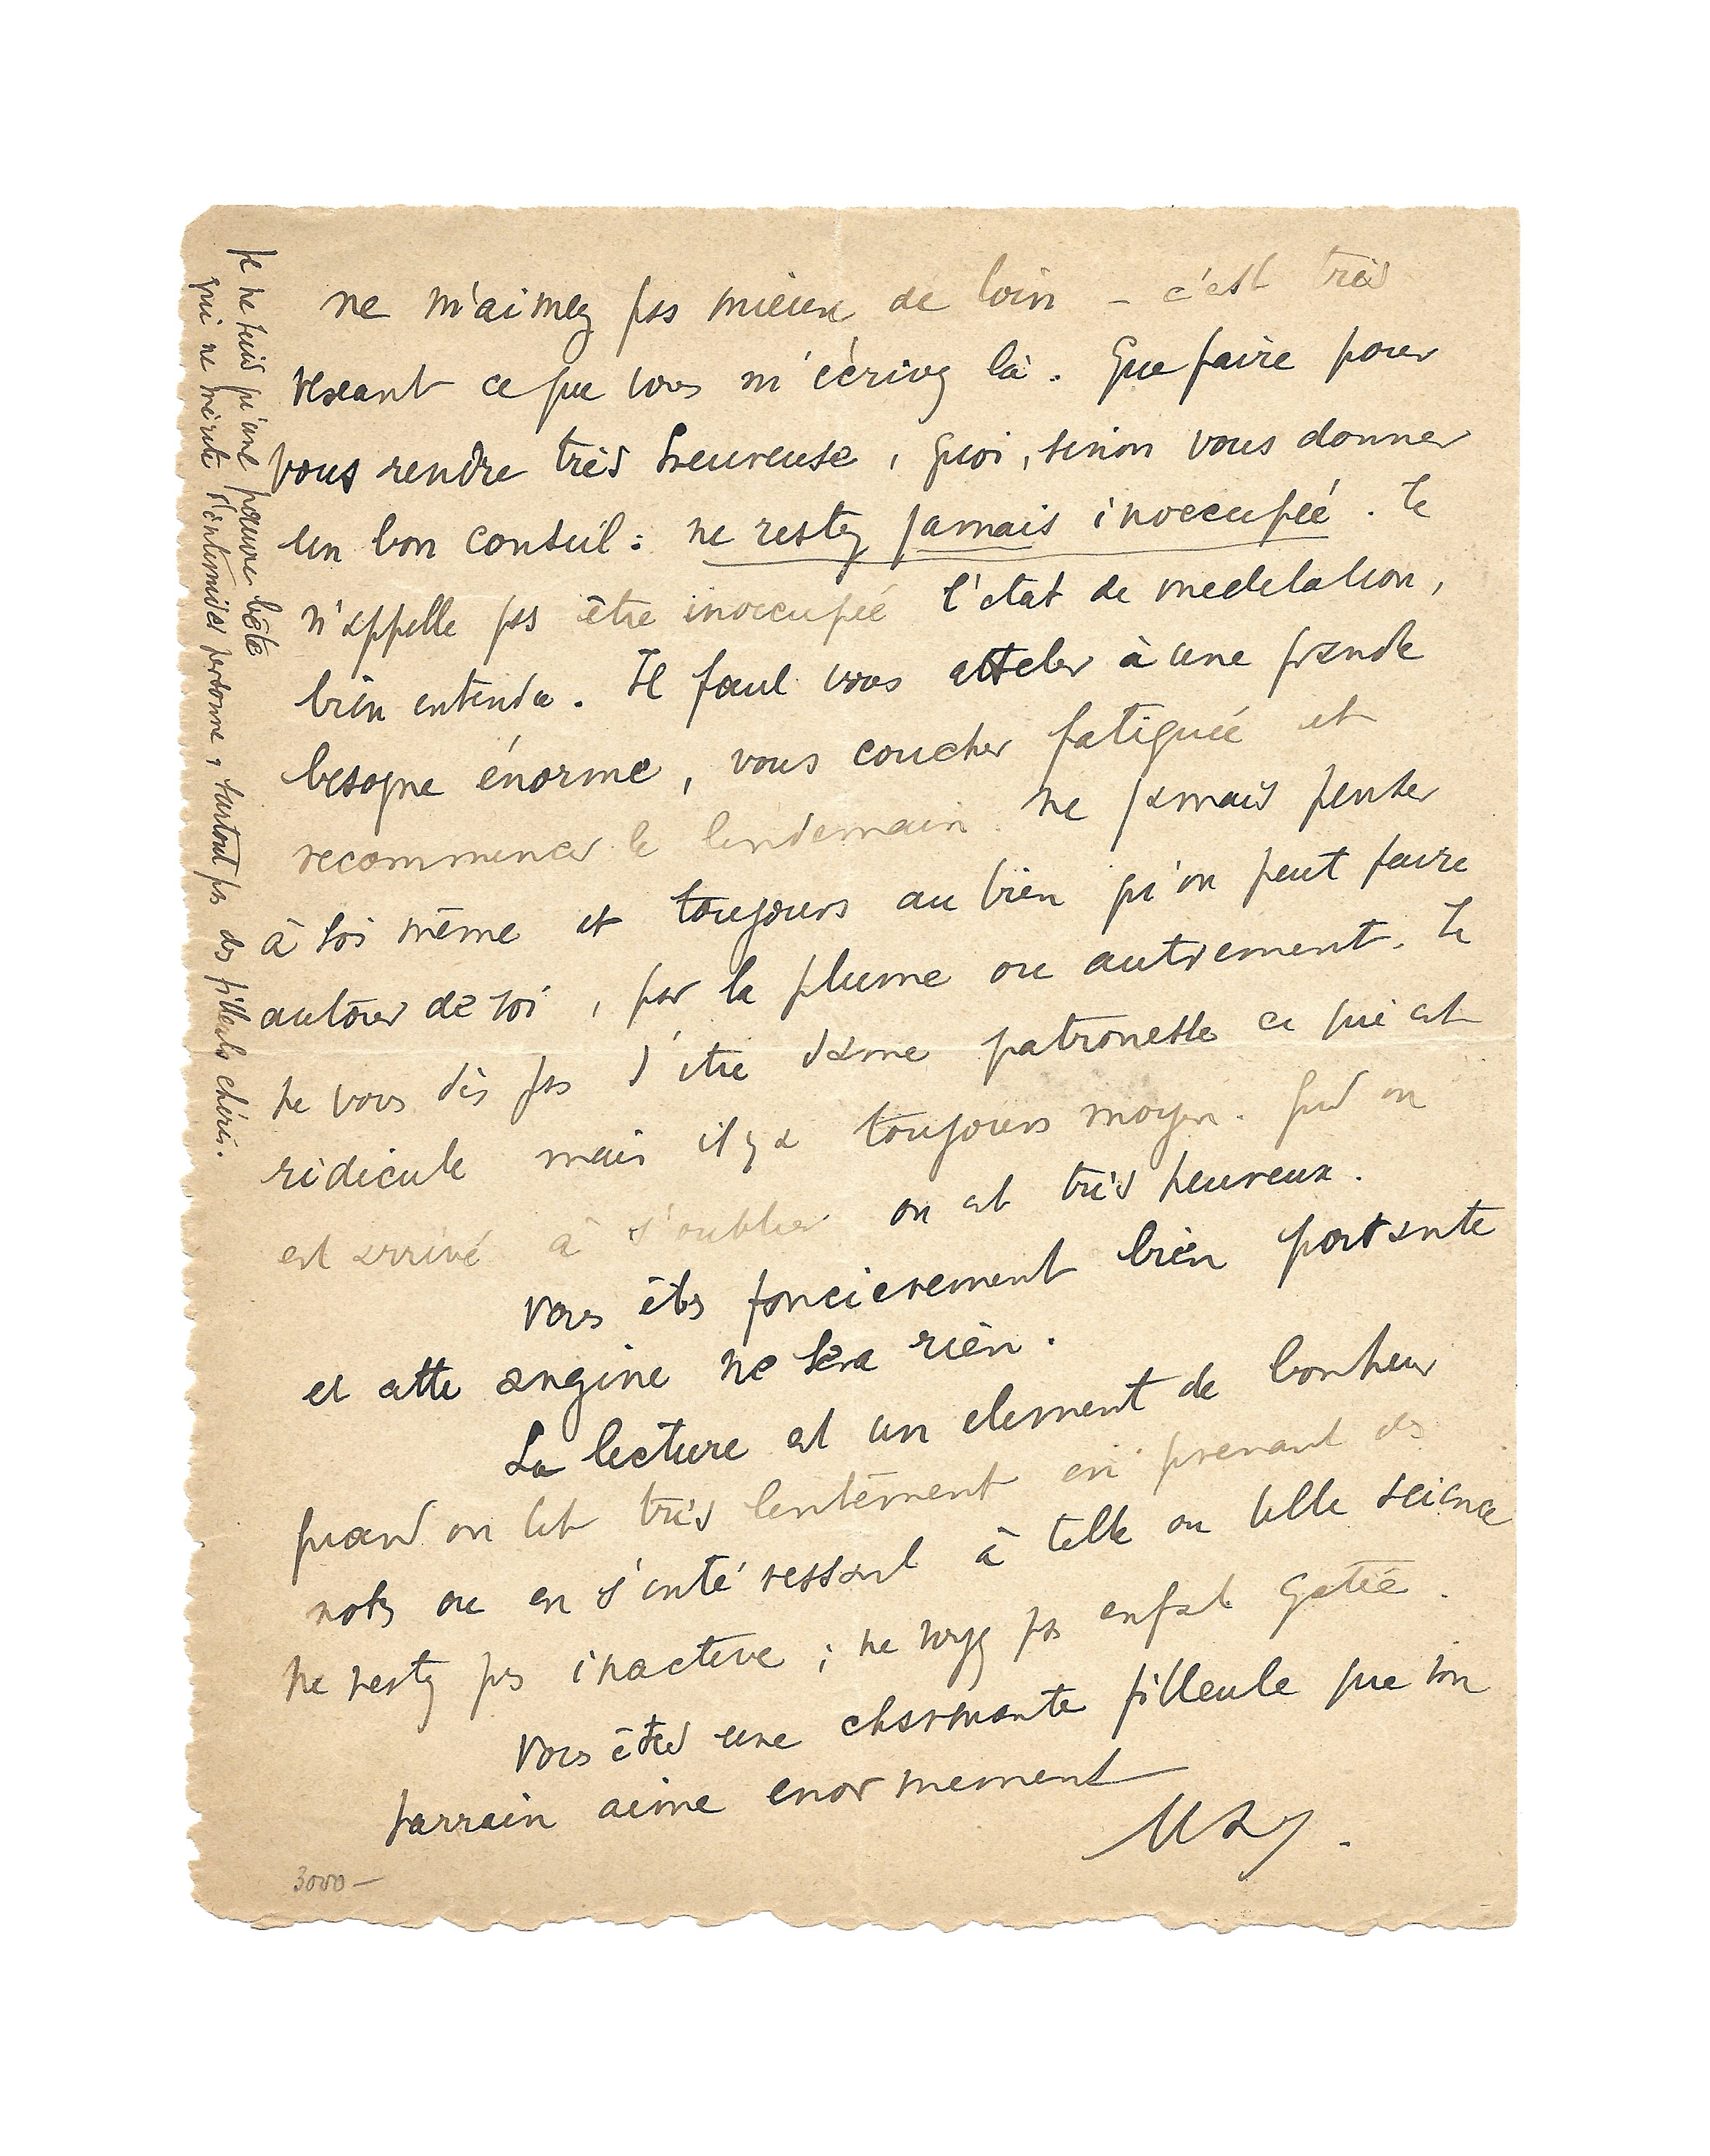 ne m'aimez pas mieux de loin – c'est très
vexant ce que vous m'écrivez là. Que faire pour
vous rendre très heureuse, quoi, sinon vous donner
un bon conseil : ne restez jamais inoccupée. Je
n'appelle pas être inoccupée l'état de meditation,
bien entendu. Il faut vous atteler à une grande
besogne énorme, vous coucher fatiguée et
recommencer le lendemain. ne jamais penser
à soi même et toujours au bien qu'on peut faire
autour de soi, par la plume ou autrement. Je
ne vous dis pas d'être dame patronesse ce qui est
ridicule mais il y a toujours moyen. Qud on
est arrivé à s'oublier on est très heureux.
Vous êtes foncierement bien portante
et cette angine ne sera rien.
La lecture est un element de bonheur
quand on lit très lentement en prenant des
notes ou en s'intéressant à telle ou telle science
Ne restez pas inactive ; ne soyez pas enfat gatée.
Vous êtes une charmante filleule que son
parrain aime enormement
Max.
Je ne suis qu'une pauvre bête
qui ne mérite d'intimider personne, surtout pas des filleuls chéris.
3000 –